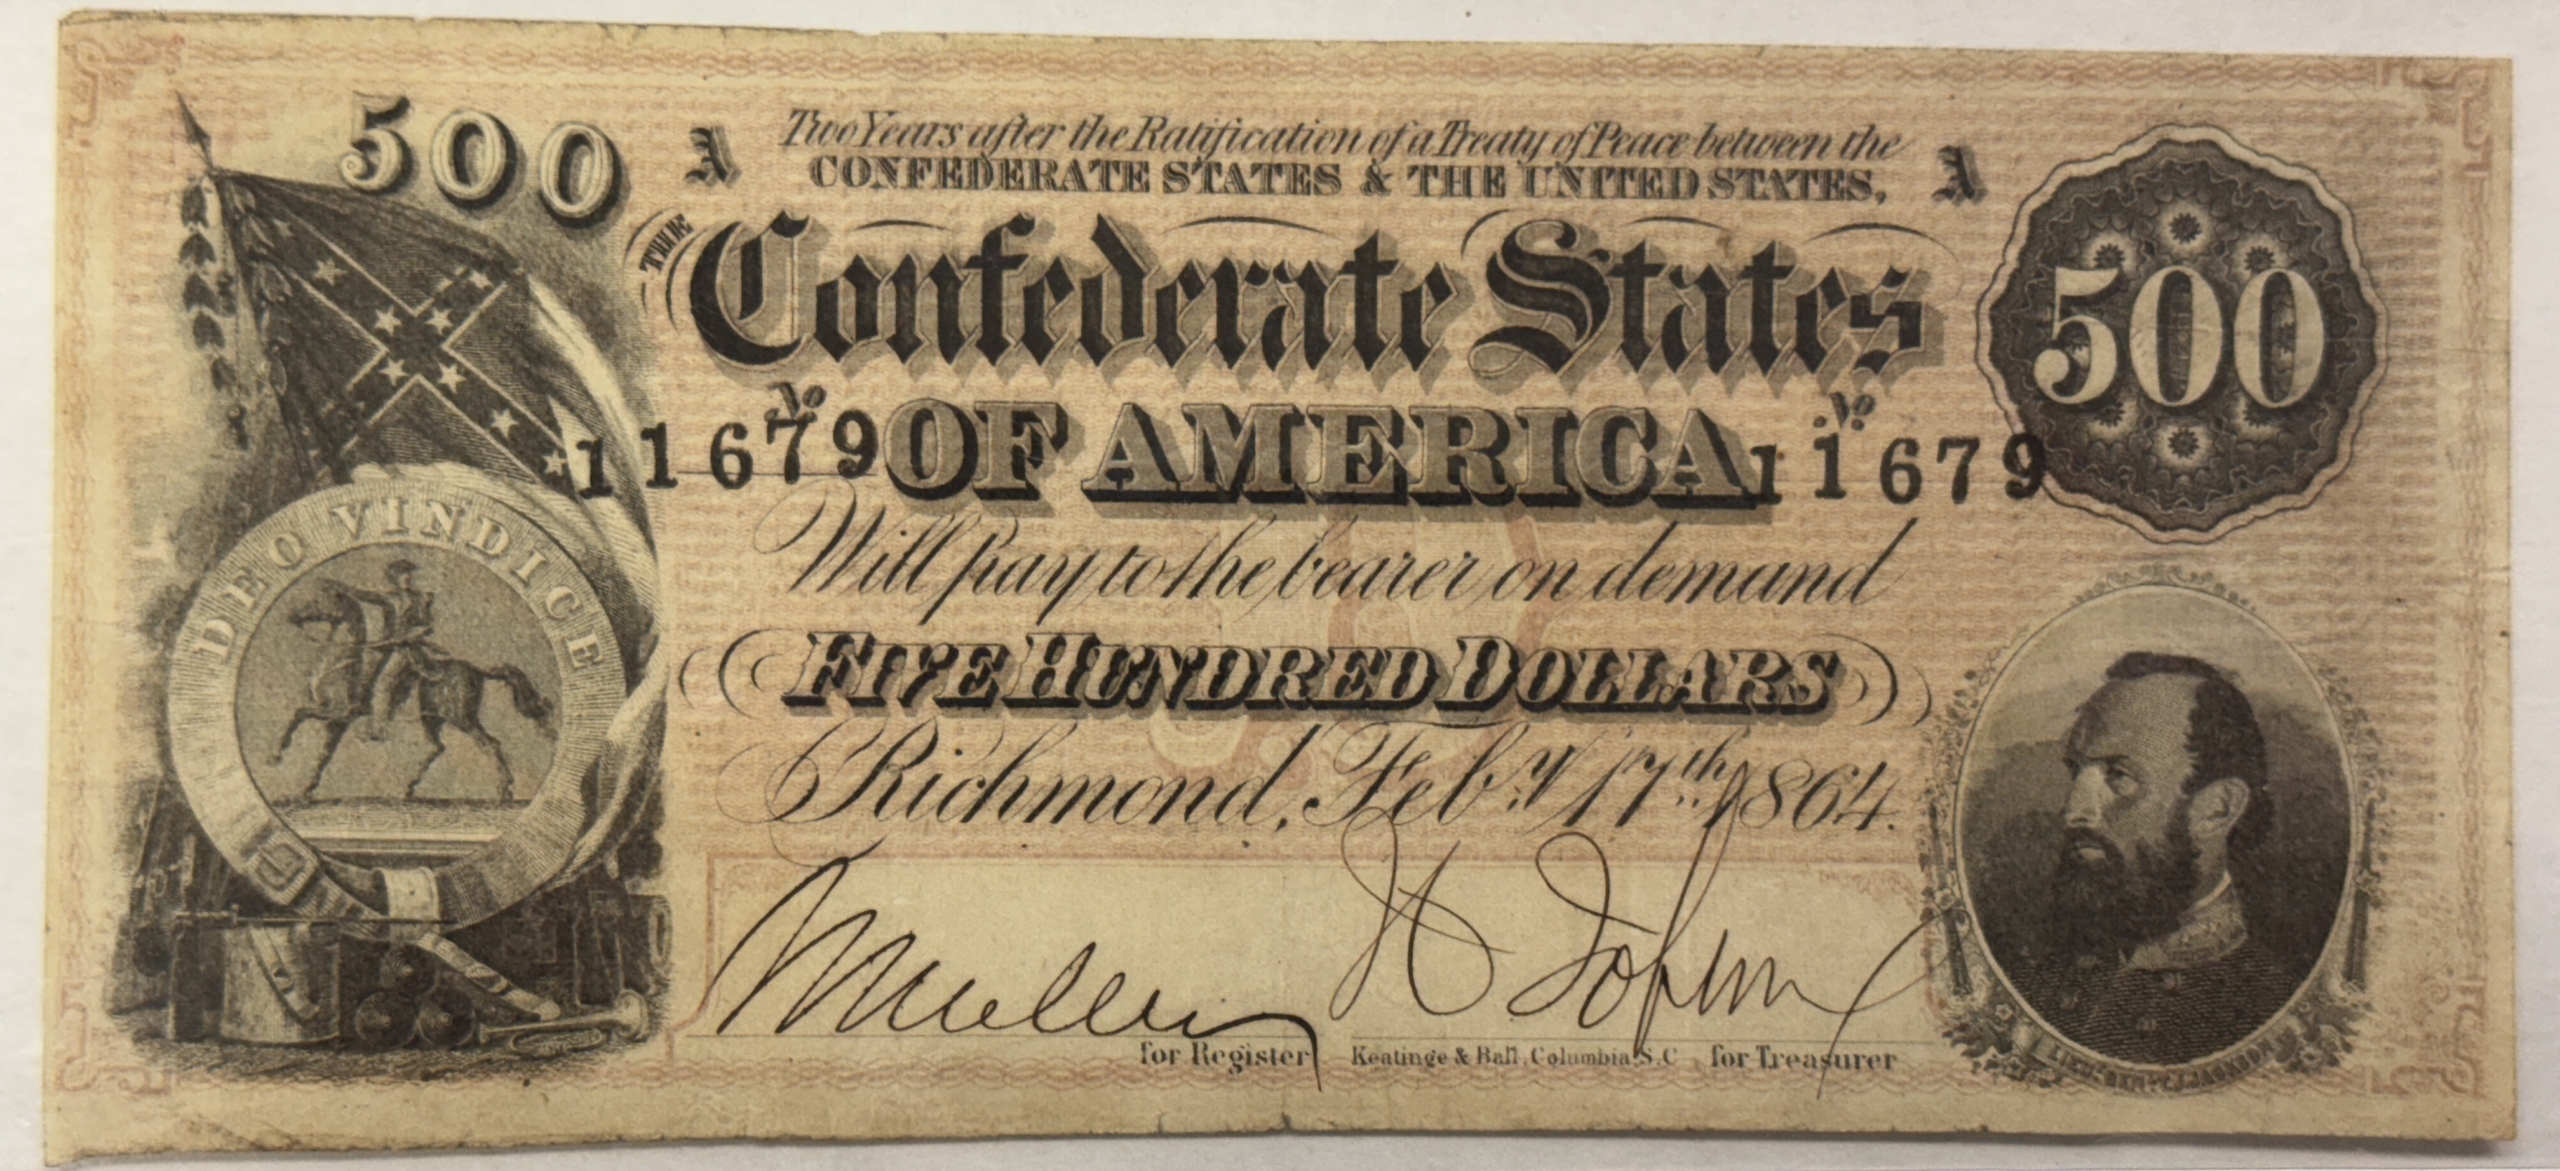 500
A Two Years after the Ratification of a Treaty of Peace between the A
CONFEDERATE STATES & THE UNITED STATES,
THE Confederate States
500
No 11679 OF AMERICA No 11679
DEO VINDICE
Will pay to the bearer on demand
FIVE HUNDRED DOLLARS
Richmond, Feby. 17th. 1864.
for Register
Keatinge & Ball, Columbia, S.C
for Treasurer